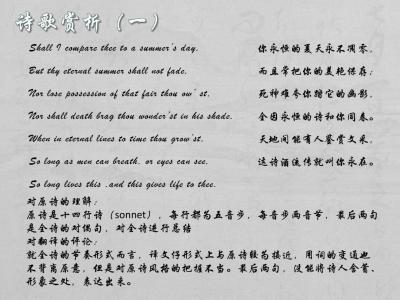 诗歌赏析（一）
Shall I compare thee to a summer's day.
But thy eternal summer shall not fade,
Nor lose possession of that fair thou ow' st,
Nor shall death brag thou wonder'st in his shade,
When in eternal lines to time thou grow'st,
So long as men can breath, or eyes can see,
So long lives this ,and this gives life to thee.
你永恒的夏天永不凋零,
而且常把你的美艳保存;
死神难夸你踏它的幽影,
全因永恒的诗和你同春。
天地间能有人鉴赏文采,
这诗酒流传就叫你永在。
对原诗的理解:
原诗是十四行诗(sonnet)，每行都为五音步，每音步两音节，最后两句
是全诗的对偶句，对全诗进行总结
对翻译的评论:
就全诗的节奏形式而言，译文仔形式上与原诗较为接近，用词的变通也
不背离原意，但是对原诗风格的把握不当。最后两句，没能将诗人含蓄、
形象之处，表达出来。